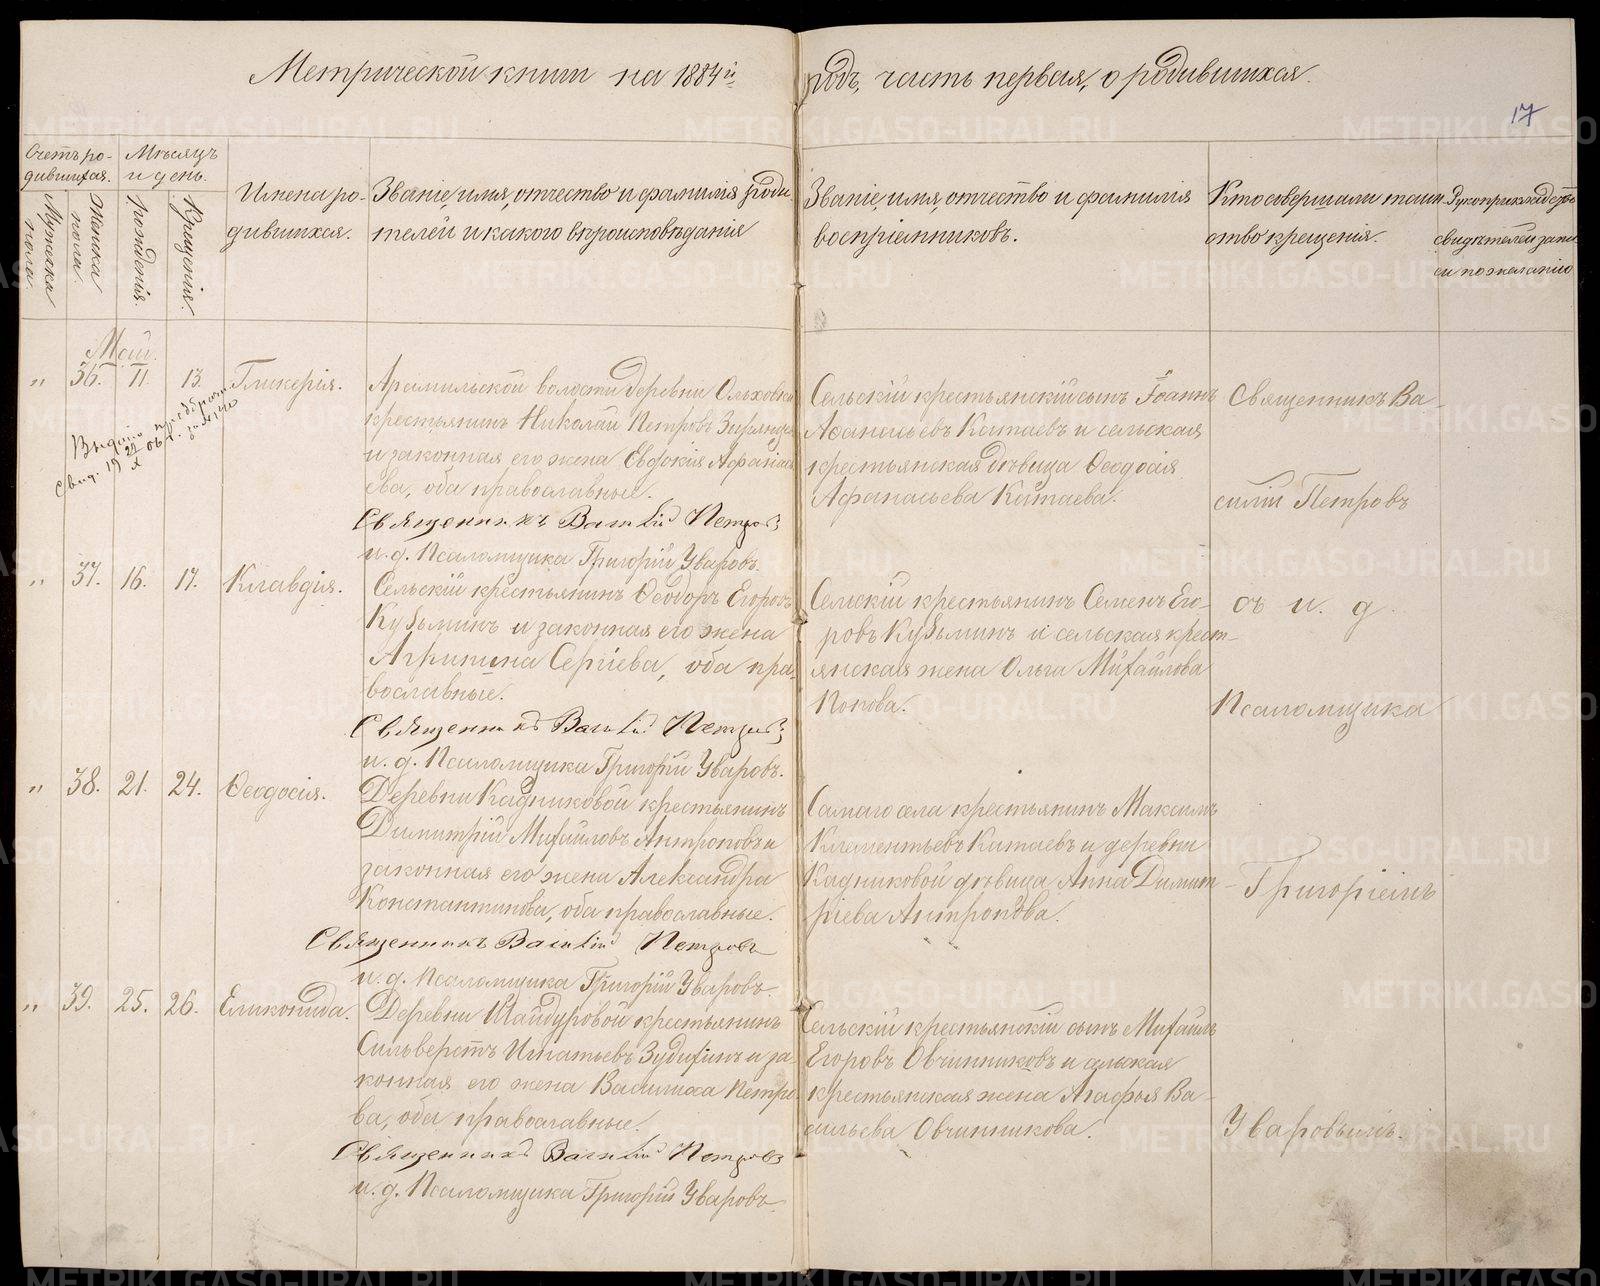 Метрической книги на 1884й годъ, часть первая, о родившихся.
17
Счетъ ро-
дившихся.
Мѣсяцъ
и день.
Мужеска
пола.
Женска
пола.
Рожденія.
Крещенія.
Имена ро-
дившихся.
Званіе, имя, отчество и фамилія роди
телей и какого вѣроисповѣданія
Званіе, имя, отчество и фамилія
воспріемниковъ.
Кто совершалъ таин-
ство крещенія.
Рукоприкладство
свидѣтелей запи
си по желанію
Май.
" 36. 11. 13. Гликерія.
Арамильской волости деревни Ольховки
крестьянинъ Николай Петровъ
и законная его жена Евдокія Афанась
ева, оба православные.
Священникъ Василій Петровъ
и. д. Псаломщика Григорій Уваровъ.
Сельскій крестьянскій сынъ Іоаннъ
Афанасьевъ Китаевъ и сельская
крестьянская дѣвица Ѳеодосія
Афанасьева Китаева.
Выдано
свид. 19
" 37. 16. 17. Клавдія.
Сельскій крестьянинъ Ѳеодоръ Егоровъ
Кузьминъ и законная его жена
Агрипина Сергіева, оба пра-
вославные.
Священникъ Василій Петровъ
и. д. Псаломщика Григорій Уваровъ.
Сельскій крестьянинъ Семенъ Его-
ровъ Кузьминъ и сельская крест-
янская жена Ольга Михайлова
Попова.
" 38. 21. 24. Ѳеодосія.
Деревни Кадниковой крестьянинъ
Димитрій Михайловъ Антроповъ и
законная его жена Александра
Константинова, оба православные.
Священникъ Василій Петровъ
и. д. Псаломщика Григорій Уваровъ.
Самаго села крестьянинъ Максимъ
Климентьевъ Китаевъ и деревни
Кадниковой дѣвица Анна Димит-
ріева Антропова.
" 39. 25. 26. Еликонида.
Деревни Шайдуровой крестьянинъ
Сильверстъ Игнатьевъ Зудихинъ и за
конная его жена Василиса Петро-
ва, оба православные.
Священникъ Василій Петровъ
и. д. Псаломщика Григорій Уваровъ.
Сельскій крестьянскій сынъ Михаилъ
Егоровъ Овчинниковъ и сельская
крестьянская жена Агафья Ва-
сильева Овчинникова.
Священникъ Ва-
силій Петровъ
съ и. д.
Псаломщика
Григоріемъ
Уваровымъ.
METRIKI.GASO-URAL.RU